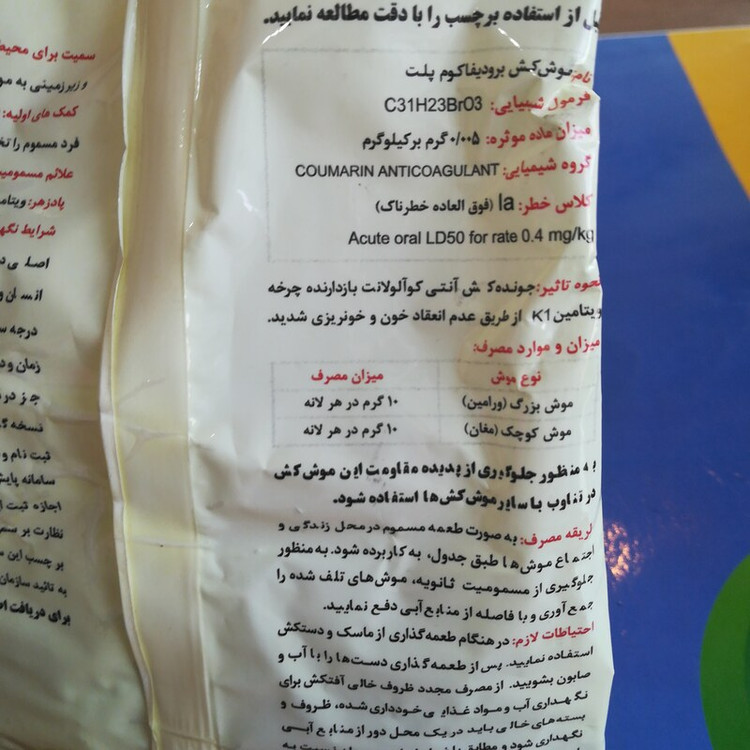 از استفاده برچسب را با دقت مطالعه نمایید.
نام: موش‌کش برودیفاکوم پلت
فرمول شیمیایی: C31H23BrO3
میزان ماده موثره: ۰/۰۰۵ گرم برکیلوگرم
گروه شیمیایی: COUMARIN ANTICOAGULANT
کلاس خطر: Ia (فوق العاده خطرناک)
Acute oral LD50 for rate 0.4 mg/kg
نحوه تاثیر: جونده‌کش آنتی کوآلولانت بازدارنده چرخه
ویتامین K1 از طریق عدم انعقاد خون و خونریزی شدید.
میزان و موارد مصرف:
نوع موش میزان مصرف
موش بزرگ (ورامین) ۱۰ گرم در هر لانه
موش کوچک (مغان) ۱۰ گرم در هر لانه
به منظور جلوگیری از پدیده مقاومت این موش‌کش
در تناوب با سایر موش‌کش‌ها استفاده شود.
طریقه مصرف: به صورت طعمه مسموم در محل زندگی و
اجتماع موش‌ها طبق جدول، به کار برده شود. به منظور
جلوگیری از مسمومیت ثانویه، موش‌های تلف شده را
جمع آوری و با فاصله از منابع آبی دفع نمایید.
احتیاطات لازم: در هنگام طعمه‌گذاری از ماسک و دستکش
استفاده نمایید. پس از طعمه گذاری دست‌ها را با آب و
صابون بشویید. از مصرف مجدد ظروف خالی آفتکش برای
نگهداری آب و مواد غذایی خودداری شده، ظروف و
بسته‌های خالی باید در یک محل دور از منابع آبی
نگهداری شود و مطابق
سمیت برای محیط
و زیرزمینی به
کمک های اولیه:
فرد مسموم را
علائم مسمومیت
پادزهر: ویتامین
شرایط
اصلی
انسان و
درجه
زمان و
جز در
نسخه
ثبت نام و
سامانه
اجازه ثبت
نظارت بر
بر چسب این
به تائید سازمان
برای دریافت